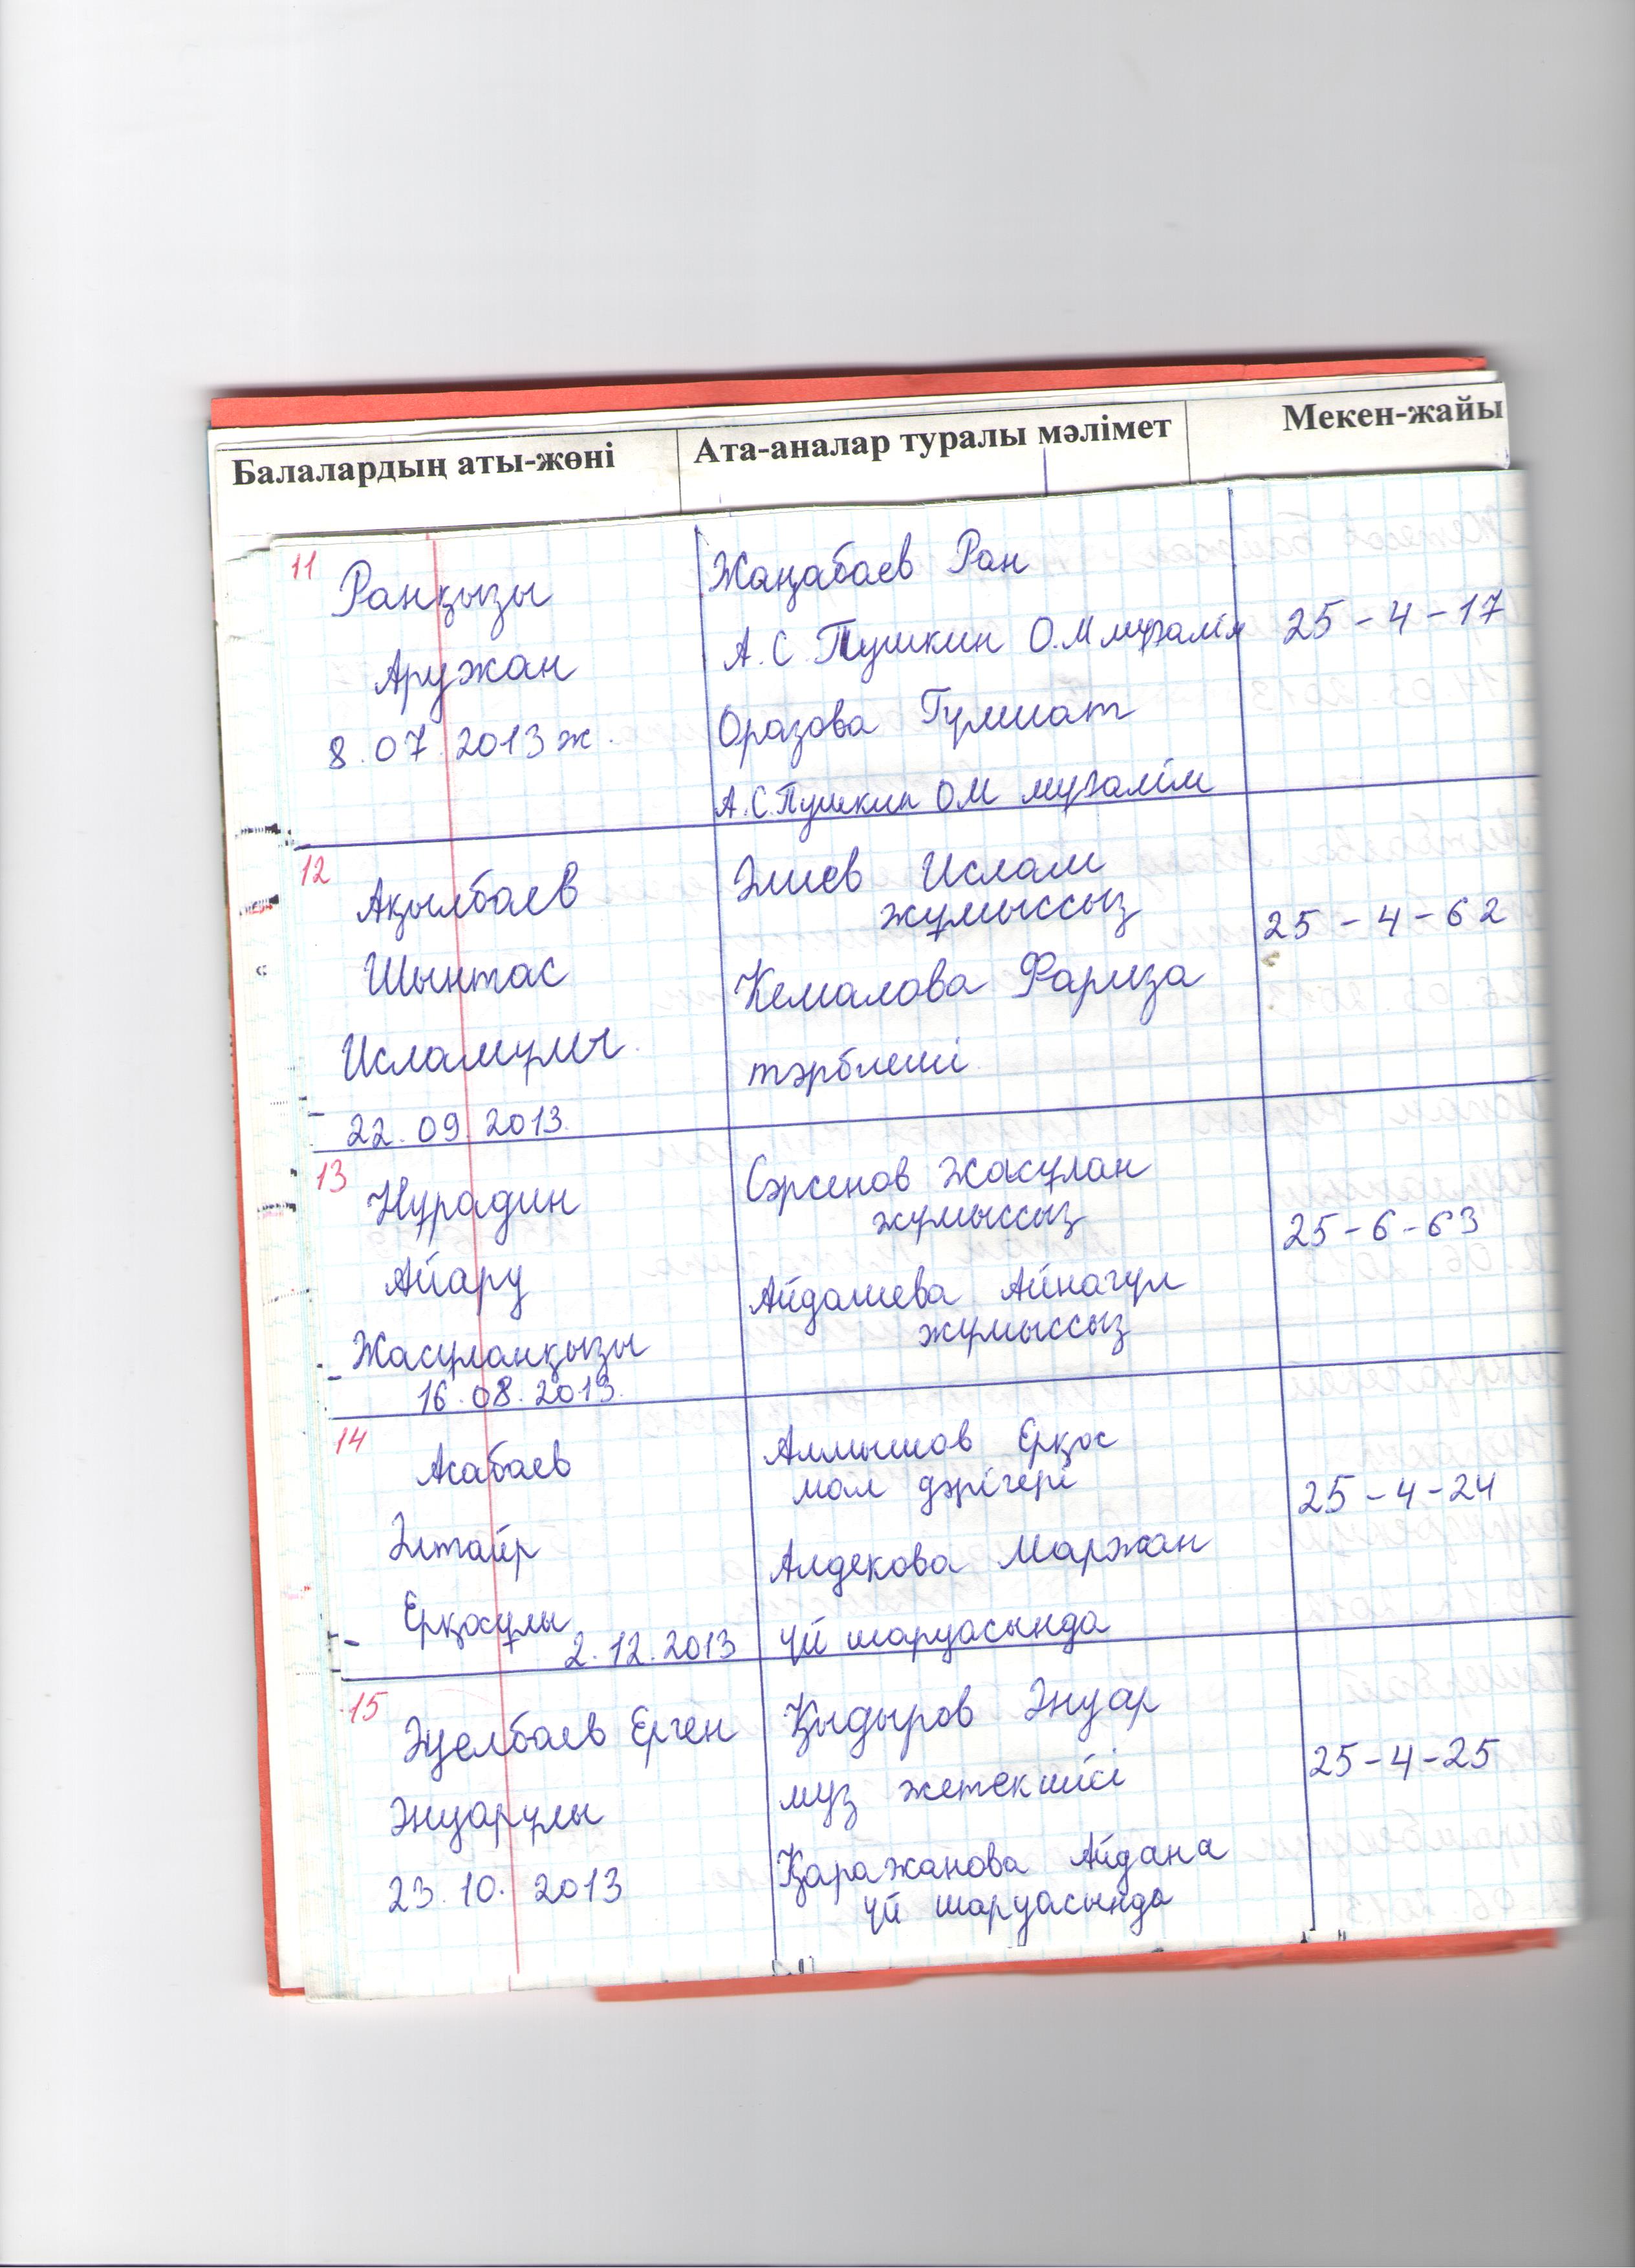 Балалардың аты-жөні Ата-аналар туралы мәлімет Мекен-жайы
11
Ранқызы
Аружан
8.07.2013ж.
Жаңабаев Ран
А.С.Пушкин О.М мұғалім
Оразова Гүлшат
А.С.Пушкин ОМ мұғалім
25-4-17
12
Ақылбаев
Шынтас
Исламұлы.
22.09.2013.
Әлиев Ислам
жұмыссыз
Кемалова Фариза
тәрблеші
25-4-62
13
Нұрадин
Айару
Жасұланқызы
16.08.2013.
Сәрсенов Жасұлан
жұмыссыз
Айдашева Айнагүл
жұмыссыз
25-6-63
14
Асабаев
Элтайр
Ерқосұлы
2.12.2013
Алмышов Ерқос
мал дәрігері
Алдекова Маржан
үй шаруасында
25-4-24
15
Әуелбаев Ерген
Әнуарұлы
23.10.2013
Қыдыров Әнуар
муз жетекшісі
Қаражанова Айдана
үй шаруасында
25-4-25